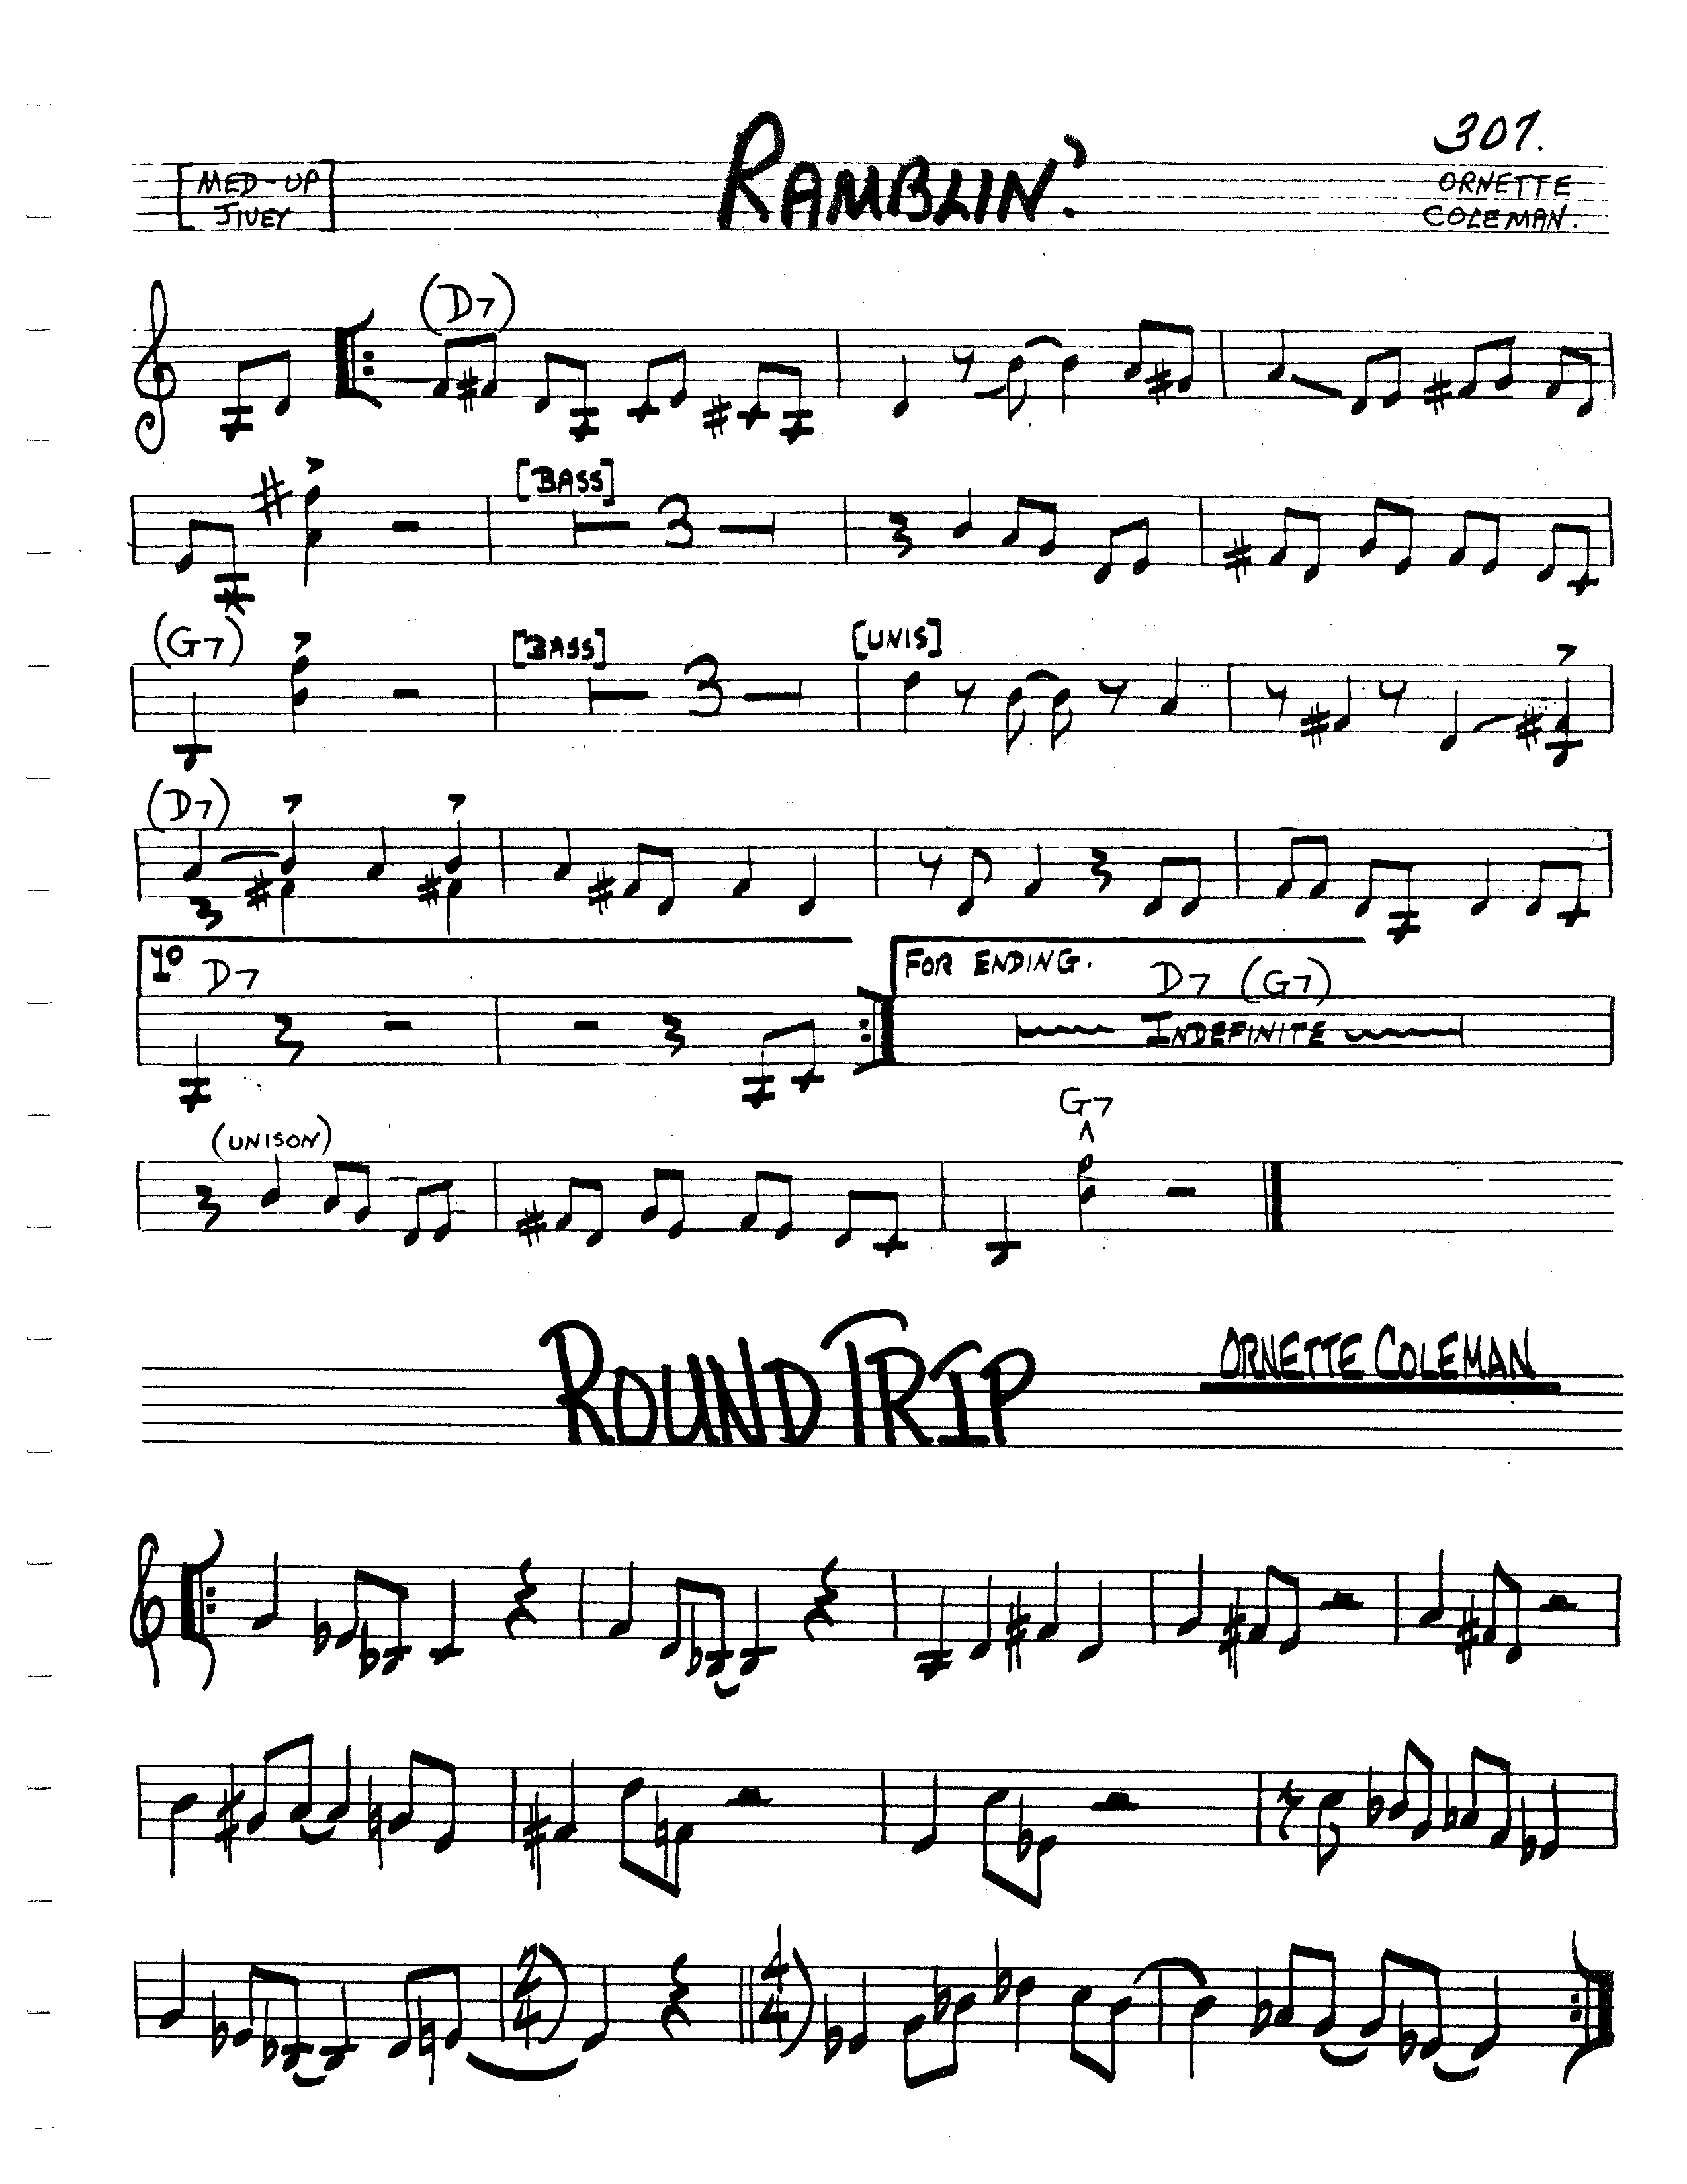 307.
RAMBLIN'.
[MED-UP
JIVEY]
ORNETTE
COLEMAN.
(D7)
[BASS]
3
(G7)
[BASS]
3
[UNIS]
(D7)
1o
D7
FOR ENDING.
D7 (G7)
INDEFINITE
(UNISON)
G7
ROUND TRIP
ORNETTE COLEMAN
2
4
4
4